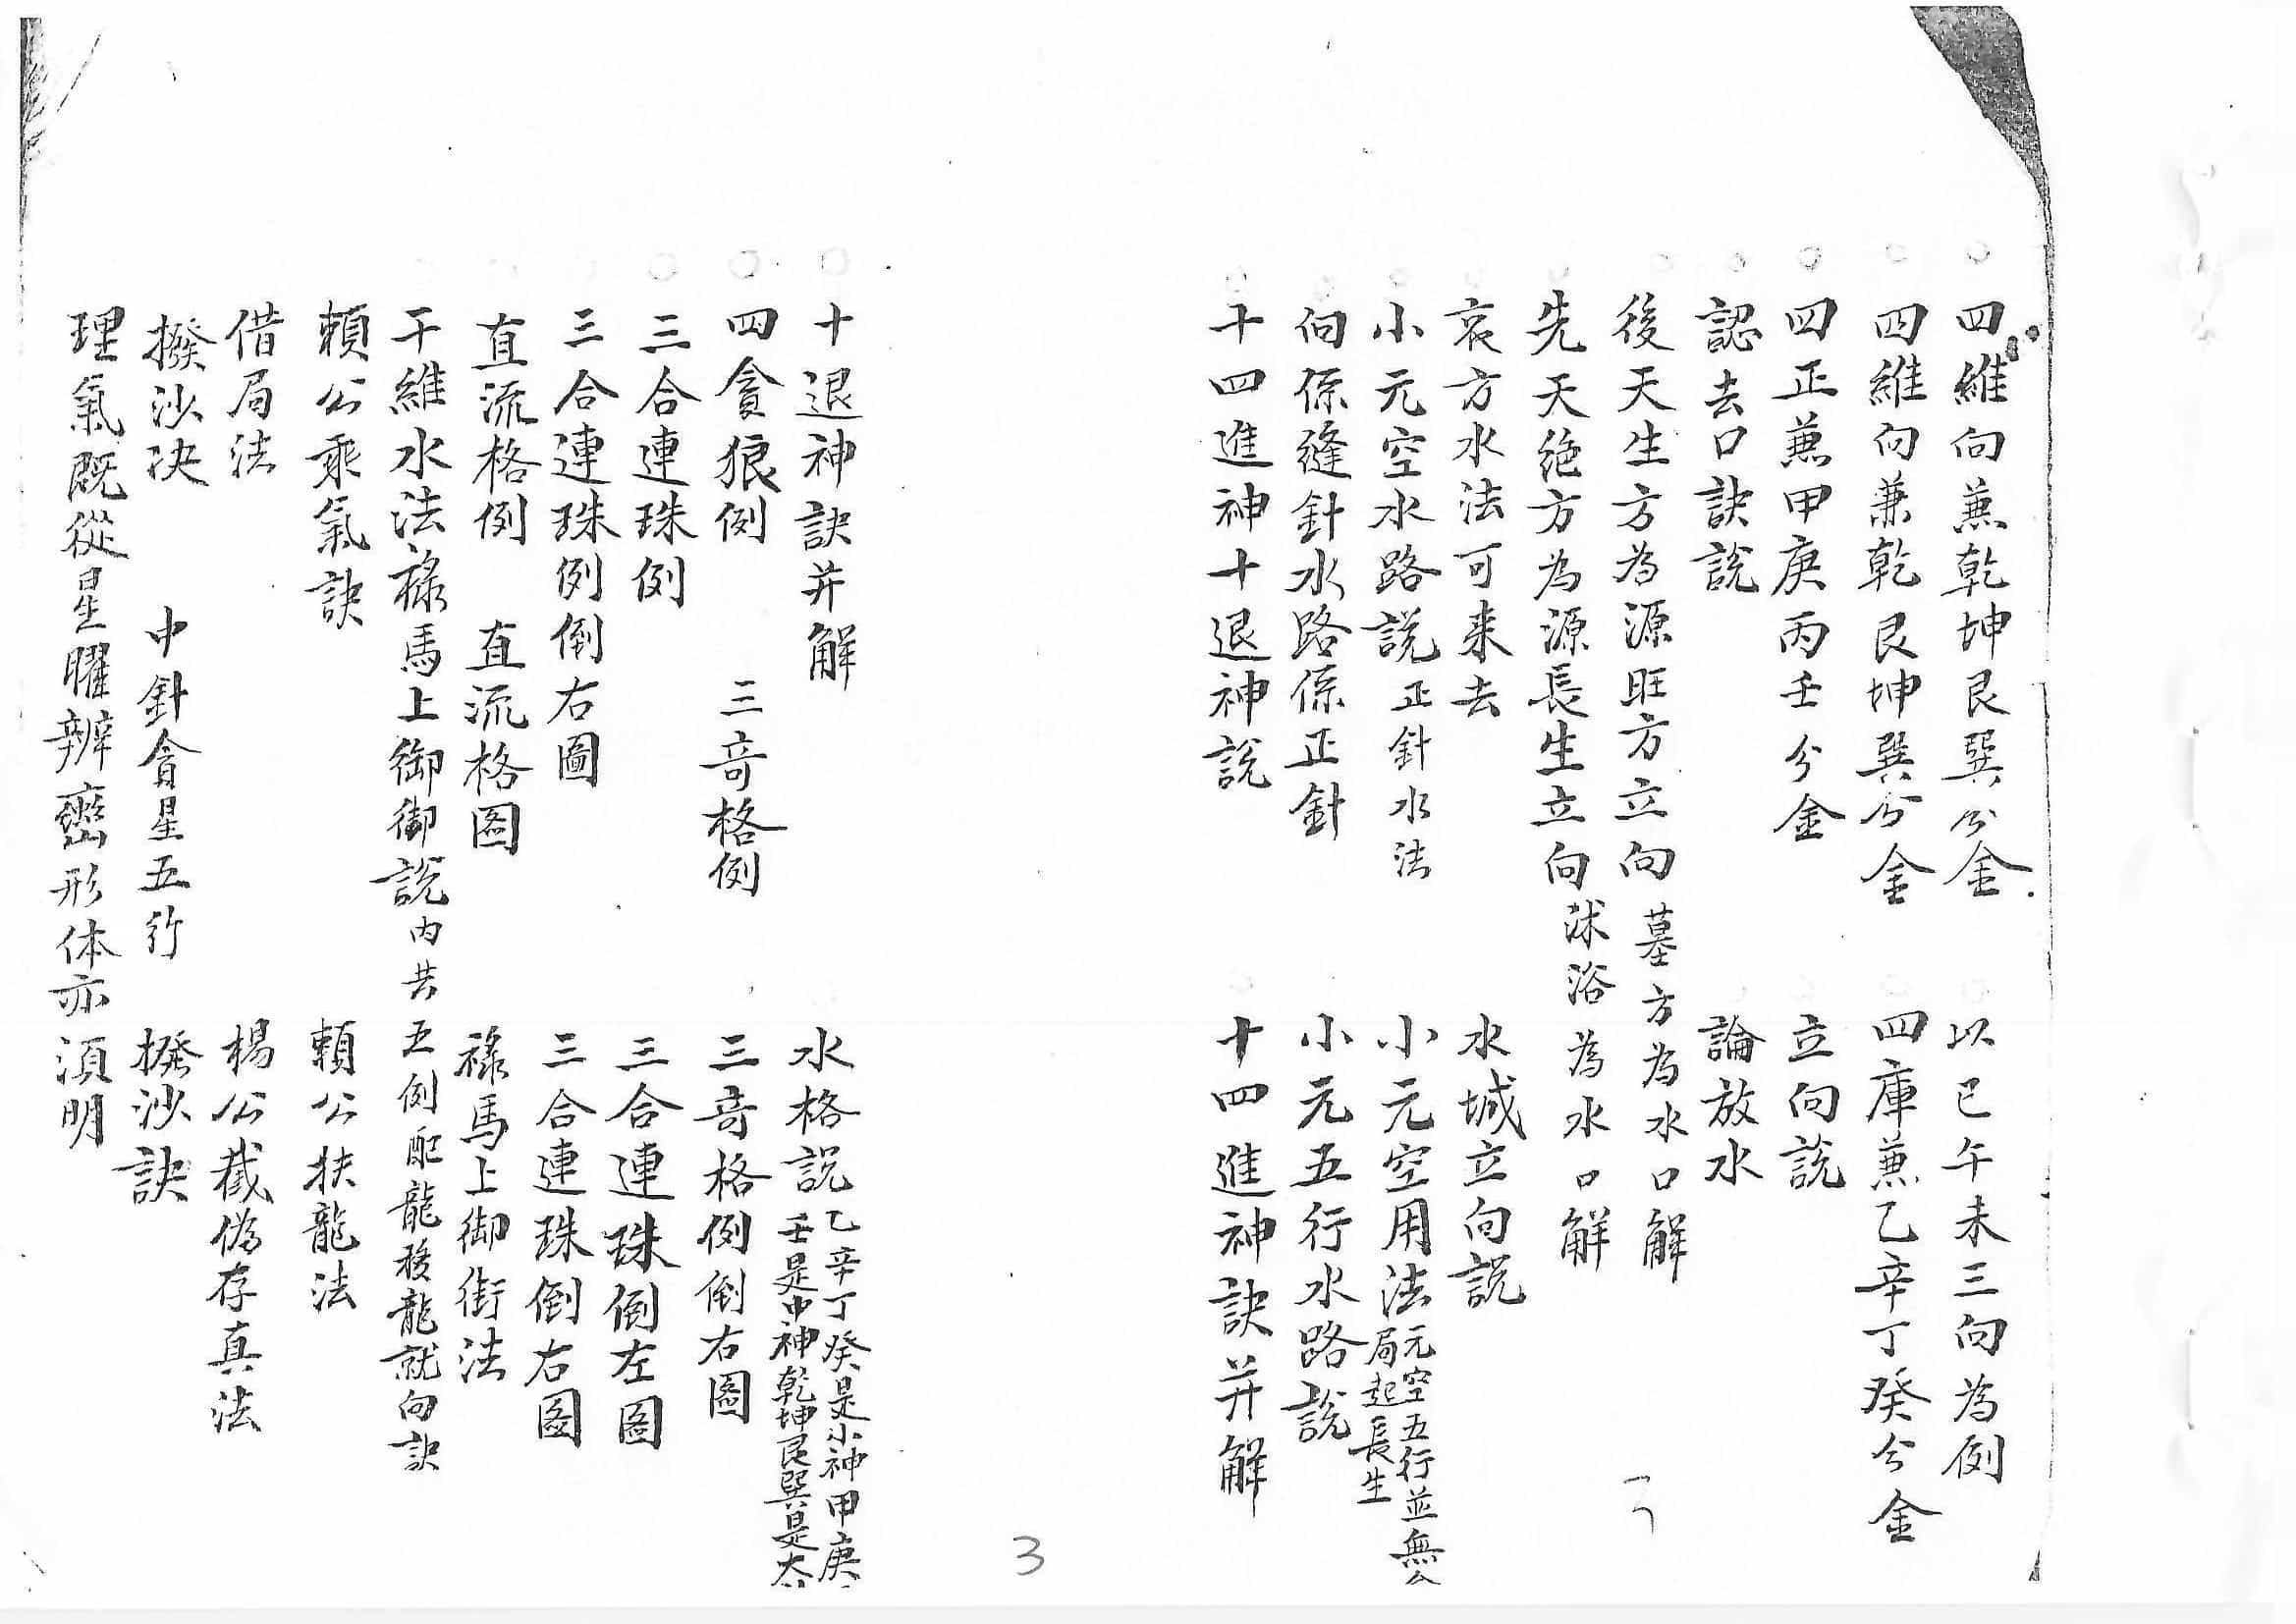 四維向兼乾坤艮巽分金　以巳午未三向為例
四維向兼乾艮坤巽分金　四庫兼乙辛丁癸分金
四正兼甲庚丙壬分金　立向說
認去口訣說　論放水
後天生方為源旺方立向墓方為水口解
先天绝方為源長生立向沭浴為水口解
衰方水法可来去　水城立向説
小元空水路説正針水法　小元空用法元空五行並無
局起長生
向係縫針水路係正針　小元五行水路説
十四進神十退神説　十四進神訣并解
十退神訣并解　水格説乙辛丁癸是小神甲庚
壬是中神乾坤艮巽是大
四貪狼例　三竒格例　三竒格例倒右圖
三合連珠例　三合連珠倒左圖
三合連珠例倒右圖　三合連珠倒右圖
直流格例　直流格图　禄馬上御街法
干維水法禄馬上御御説内共五例配龍移龍就向訣
賴公乘氣訣　賴公扶龍法
借局法　楊公截偽存真法
撥沙决　中針貪星五行　撥沙訣
理氣既從星曜辨巒形体亦須明
3